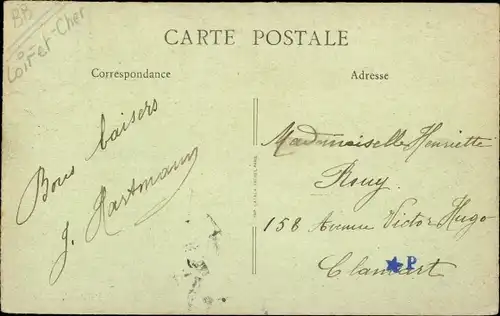 BB
Loir-et-Cher
CARTE POSTALE
Correspondance
Adresse
Bons baisers
J. Hartmann
Mademoiselle Henriette
Rouy
158 Avenue Victor Hugo
Clamart
P